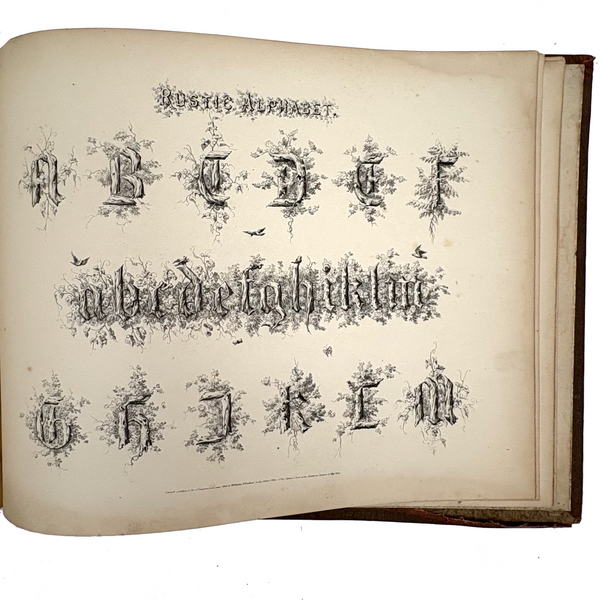 RUSTIC ALPHABET.
A B C D E F
abcdefghiklm
G H J K L M